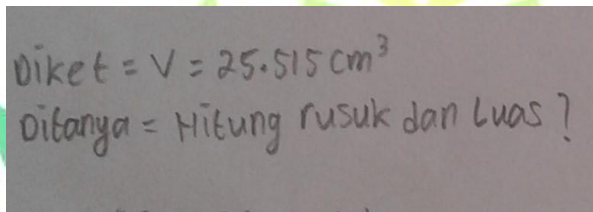 Diket = V = 25.515 cm³
Ditanya = Hitung rusuk dan Luas?